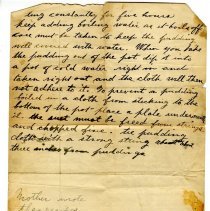 ling constantly for five hours
keep adding boiling water as it boils off
care must be taken to keep the pudding
well covered with water. When you take
the pudding out of the pot dip it into
a pot of cold water right in and
taken right out and the cloth will then
not adhere to it. To prevent a pudding
boiled in a cloth from sticking to the
bottom of the pot place a plate underneath
it. the suet must be freed from strings
and chopped fine. the pudding
cloth with a strong string about
three inches from pudding
Mother wrote